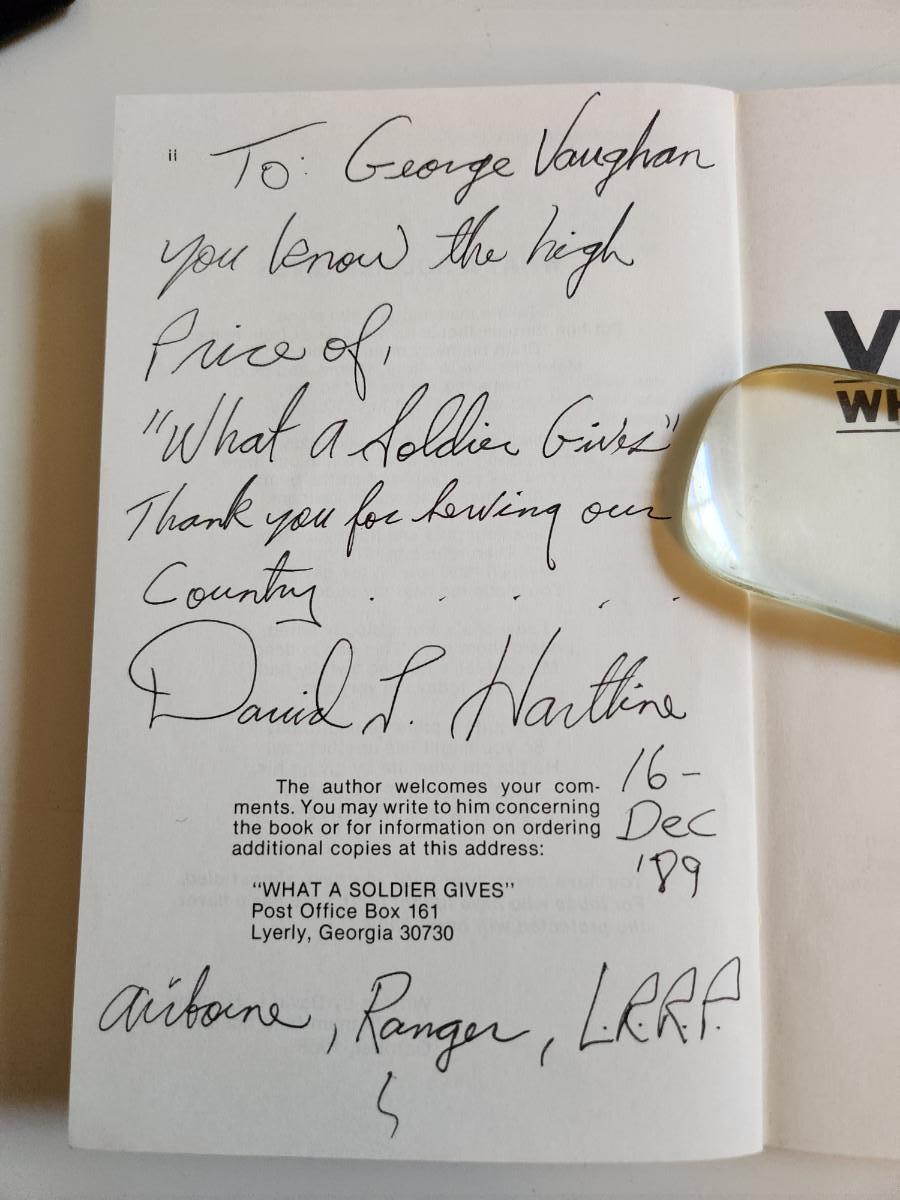 ii To: George Vaughan
you know the high
Price of,
"What A Soldier Gives"
Thank you for serving our
Country . . . . .
David L. Hartline
The author welcomes your com-
ments. You may write to him concerning
the book or for information on ordering
additional copies at this address:
16-
Dec
'89
"WHAT A SOLDIER GIVES"
Post Office Box 161
Lyerly, Georgia 30730
airborne, Ranger, L.R.R.P.
V
WH